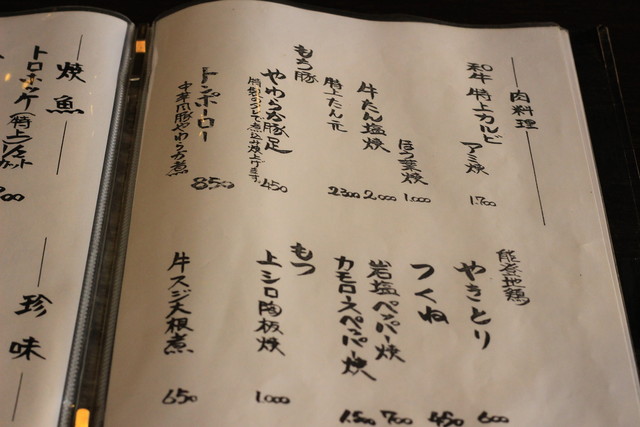 肉料理
和牛 特上カルビ アミ焼 1.700
ほう葉焼 1.000
牛たん塩焼 2.000
特上たん元 2300
もち豚
やわらか豚足 450
トンポーロー 850
中華風豚やわらか煮
能登地鶏
やきとり 600
つくね 450
岩塩ペッパー焼 700
カモロースペッパー焼 1.500
もつ
上シロ陶板焼 1.000
牛スジ大根煮 650
焼魚
トロホッケ(特上)
珍味